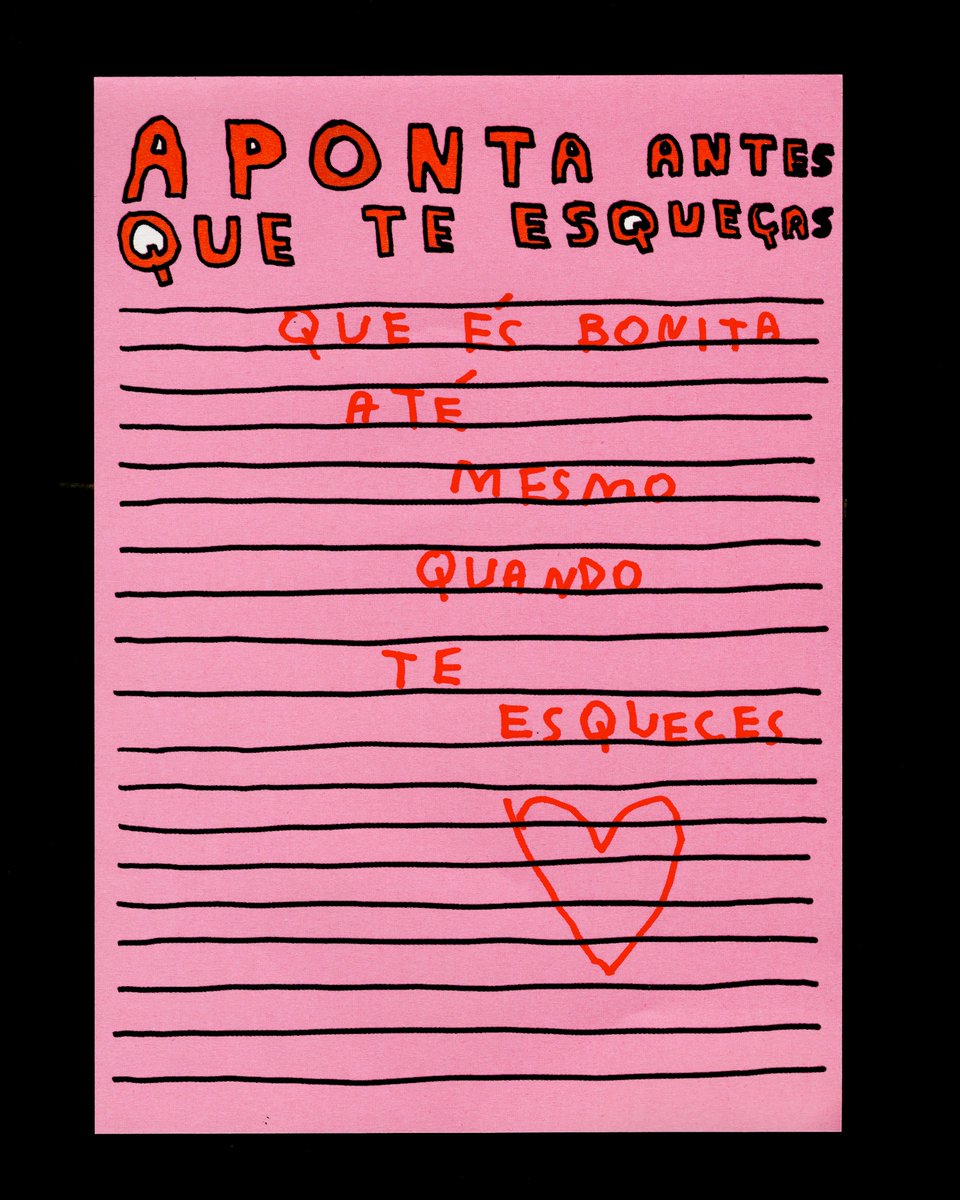 APONTA ANTES
QUE TE ESQUEÇAS
QUE ÉS BONITA
ATÉ
MESMO
QUANDO
TE
ESQUECES